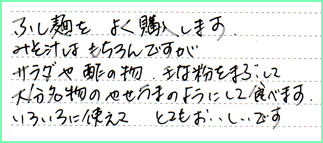 ふし麺を よく購入します.
みそ汁は もちろんですが
サラダや酢の物. きな粉をまぶして
大分名物のやせうまのようにして食べます.
いろいろに使えて とてもおいしいです